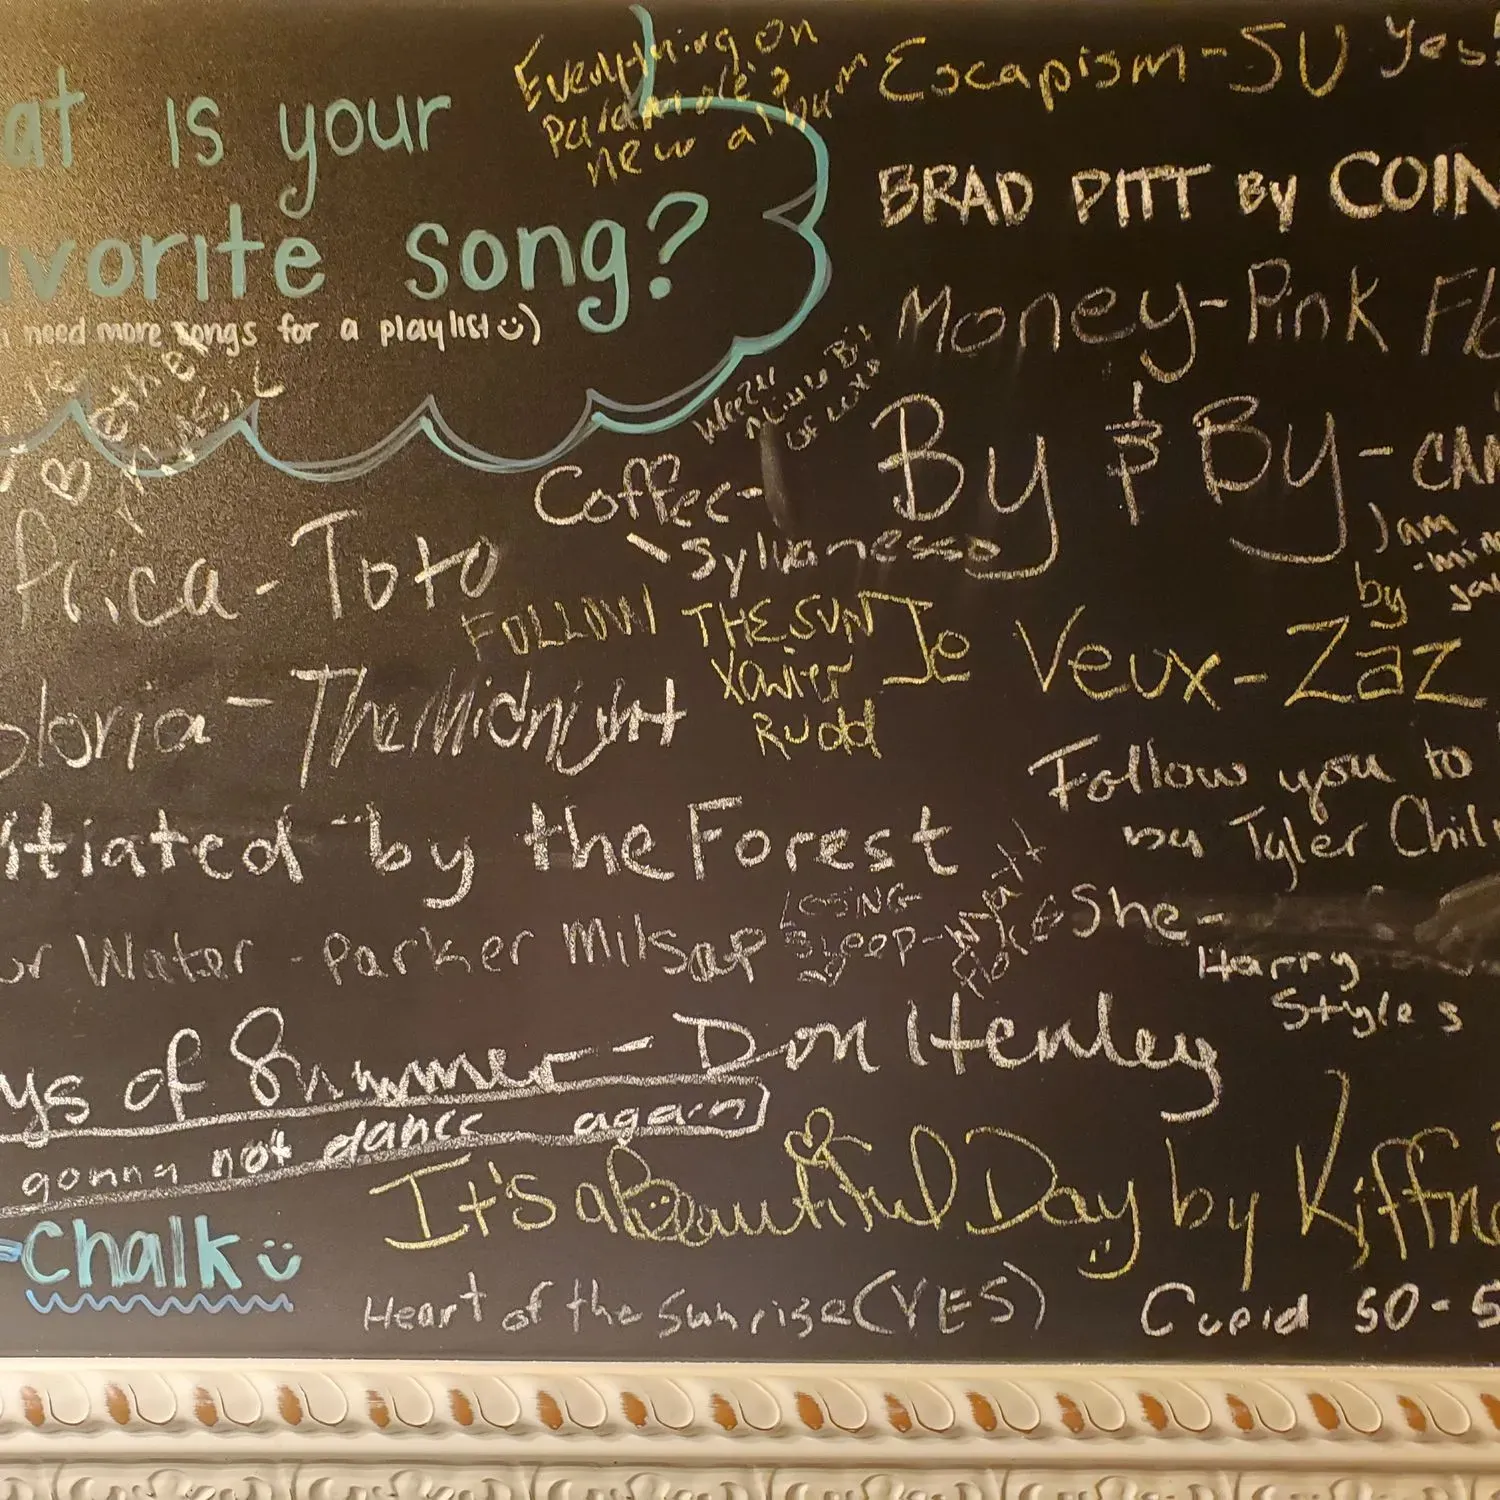 at is your
vorite song?
need more songs for a playlist
Everything on
Paramore?
new album
Escapism - SU Yes!
BRAD PITT By COIN
Money - Pink Fl
Weezer
By & By - CAA
Jam
by
Coffee -
Sylvanesso
frica - Toto
FOLLOW THE SUN
Xavier
Rudd
Je Veux - Zaz
loria - The Midnight
Follow you to
by Tyler Chil
itiated by the Forest
LOSING
SLEEP -
She -
Harry
Styles
ur Water - Parker Milsap
ys of Summer - Don Henley
gonna not dance again
It's a Beautiful Day by Kiffne
- Chalk
Heart of the Sunrise (YES)
Cupid 50 - 5